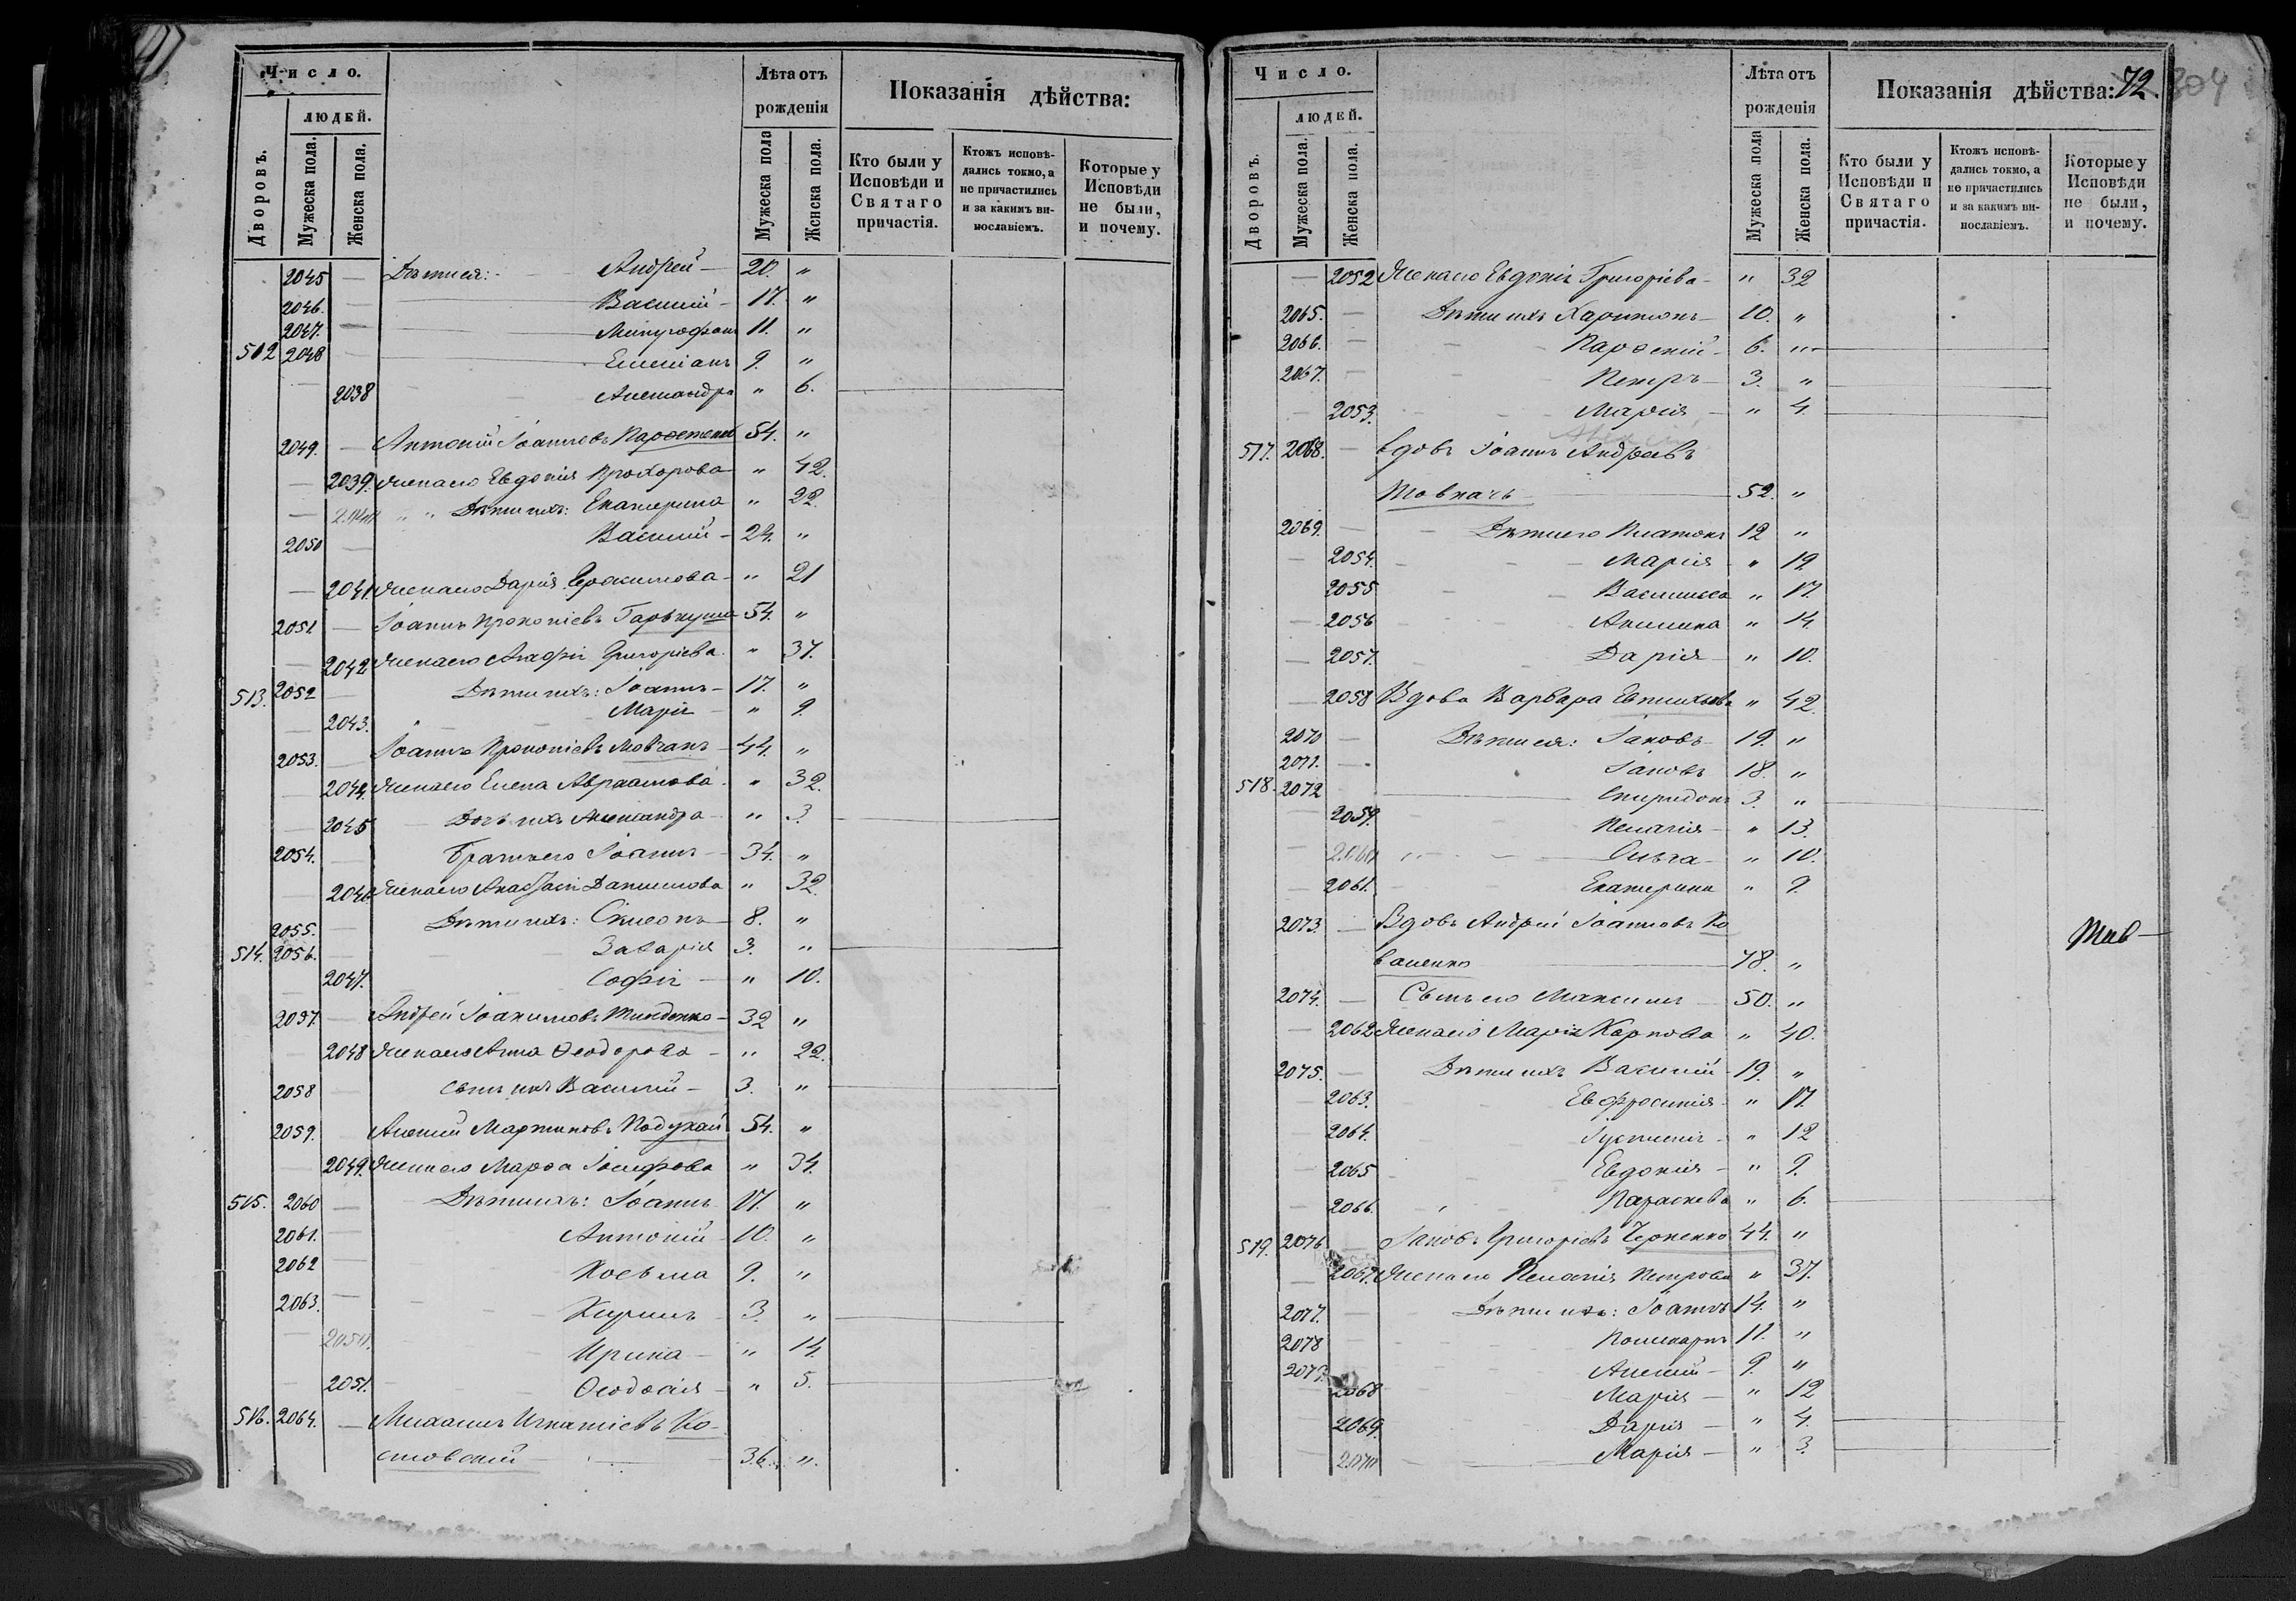 Число.
людей.
Дворовъ.
Мужеска пола.
Женска пола.
Лѣта отъ
рожденія
Мужеска пола
Женска пола.
Показанія дѣйства:
Кто были у
Исповѣди и
Святаго
причастія.
Ктожъ исповѣ-
дались токмо, а
не причастились
и за какимъ ви-
нословіемъ.
Которые у
Исповѣди
не были,
и почему.
2045 — Дѣти ея: Андрей — 20. "
2046. — Василій — 17. "
2047. — Митрофанъ 11. "
512 2048 — Емеліанъ 9. "
— 2038 Александра " 6.
2049. — Антоній Іоанновъ 54. "
— 2039. Жена его Евдокія Прохорова " 42.
— 2040 " " Дѣти ихъ: Екатерина " 22.
2050 — Василій — 24. "
— 2041. Жена его Дарія Герасимова — " 21
2051 — Іоаннъ Прокопіевъ Гаркуша 54. "
— 2042 Жена его Агафія Григоріева. " 37.
513. 2052 — Дѣти ихъ: Іоаннъ — 17. "
— 2043. Марія — " 9.
2053. — Іоаннъ Прокопіевъ Мовчанъ — 44. "
— 2044. Жена его Елена Авраамова " 32.
— 2045 Дочь ихъ Александра " 3.
2054. — Братъ его Іоаннъ — 34. "
— 2046 Жена его Анастасія Даниилова " 32.
2055. — Дѣти ихъ: Симеонъ — 8. "
514. 2056. — Захарія 3. "
— 2047. Софія — " 10.
2057. — Андрей Іоакимовъ — 32 "
— 2048 Жена его Анна Ѳеодорова — " 22.
2058 — Сынъ ихъ Василій — 3. "
2059. Алексій Мартиновъ 54. "
— 2049. Жена его Марѳа Іосифова " 34.
515. 2060 — Дѣти ихъ: Іоаннъ 17. "
2061. — Антоній — 10. "
2062 — Косьма 9. "
2063. — Кириллъ 3. "
— 2050. Ирина — " 14.
— 2051. Ѳеодосія — " 5.
516. 2064. — Михаилъ Игнатіевъ Ко-
словскій — 36. "
72.
304
Число.
людей.
Дворовъ.
Мужеска пола.
Женска пола.
Лѣта отъ
рожденія
Мужеска пола
Женска пола.
Показанія дѣйства:
Кто были у
Исповѣди и
Святаго
причастія.
Ктожъ исповѣ-
дались токмо, а
не причастились
и за какимъ ви-
нословіемъ.
Которые у
Исповѣди
не были,
и почему.
— 2052 Жена его Евдокія Григоріева — " 32
2065. — Дѣти ихъ Харитонъ — 10. "
2066. — Парѳеній — 6. "
2067. — Петръ — 3. "
— 2053. Марія — " 4.
517. 2068. — Вдовъ Іоаннъ Андреевъ
Товкачъ — 52. "
2069. — Дѣти его Платонъ 12 "
— 2054. Марія " 19.
2055 Василисса " 17.
— 2056 Акилина " 14.
— 2057. Дарія — " 10.
— 2058 Вдова Варвара Евтихіева " 42.
2070 — Дѣти ея: Іаковъ — 19. "
2071. — Іаковъ 18. "
518. 2072 Спиридонъ 3. "
2059. Пелагія — " 13.
— 2060 Ольга — " 10.
— 2061. Екатерина " 9.
2073. — Вдовъ Андрей Іоанновъ Ко
валенко — 78. "
2074. — Сынъ его Максимъ — 50. "
— 2062 Жена его Марія Карпова " 40.
2075. — Дѣти ихъ Василій — 19. "
— 2063. Евфросинія — " 17.
— 2064. Іустинія — " 12
— 2065 Евдокія — " 9.
— 2066. Параскева " 6.
519. 2076 — Іаковъ Григоріевъ Черненко 44. "
— 2067. Жена его Пелагія Петрова " 37.
2077. — Дѣти ихъ: Іоаннъ 14. "
2078 — Поликарпъ 11. "
2079. Алексій — 9. "
2068 Марія — " 12
2069. Дарія — " 4.
— 2070 Марія — " 3.